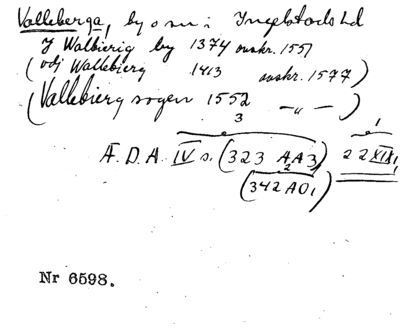 Valleberga, by o sn i Ingelstads hd
J Walbierig by 1374 avskr. 155
(vdj Wallebierg 1413 avskr. 1577)
(Vallebierg sogen 1552 —"—)
3
A. D. A. IV s. (323 AA3) 22 XIX1
2
(342 AO1)
Nr 6598.